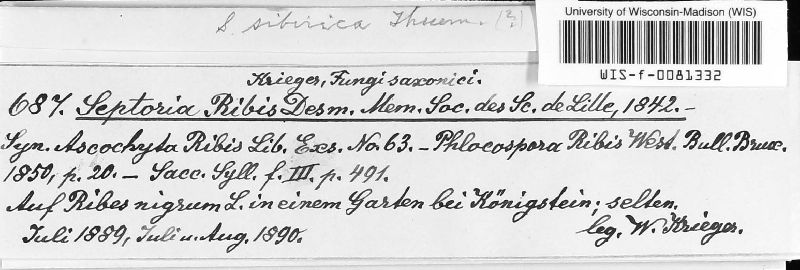 S. sibirica Thuem. (?)
University of Wisconsin-Madison (WIS)
WIS-f-0081332
Krieger, Fungi saxonici.
687. Septoria Ribis Desm. Mem. Soc. des Sc. de Lille, 1842. –
Syn. Ascochyta Ribis Lib. Exs. No. 63. – Phlocospora Ribis West. Bull. Brux.
1850, p. 20. – Sacc. Syll. f. III. p. 491.
Auf Ribes nigrum L. in einem Garten bei Königstein; selten.
Juli 1889, Juli u. Aug. 1890.
leg. W. Krieger.